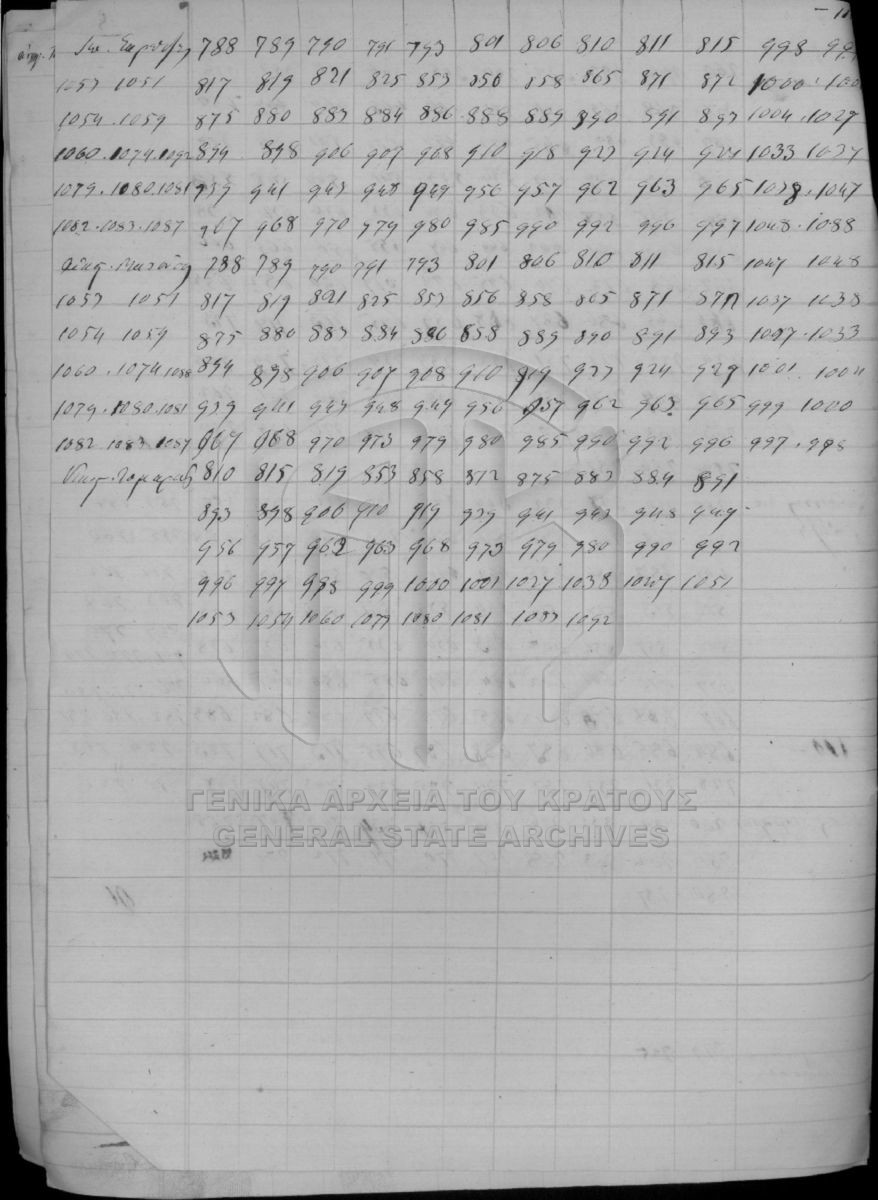 788 789 790 791 793 801 806 810 811 815 998 99
1053 1051 817 819 821 825 853 856 858 865 871 872 1000 100
1054 . 1059 875 880 883 884 886 . 888 889 890 891 893 1004 . 1027
1060 . 1074 . 1092 894 898 906 907 908 910 918 923 924 929 1033 1037
1079 . 1080 . 1081 939 941 943 948 949 956 957 962 963 965 1038 . 1047
1082 . 1083 . 1087 967 968 970 979 980 985 990 992 996 997 1048 . 1088
788 789 790 791 793 801 806 810 811 815 1047 1048
1053 1051 817 819 821 825 853 856 858 865 871 872 1037 1038
1054 1059 875 880 883 884 886 858 889 890 891 893 1027 . 1033
1060 . 1074 . 1088 894 898 906 907 908 910 919 923 924 929 1001 1004
1079 . 1080 . 1081 939 941 943 948 949 956 957 962 963 965 999 1000
1082 . 1083 . 1087 967 968 970 973 979 980 985 990 992 996 997 . 998
810 815 819 853 858 872 875 883 884 891
893 898 906 910 919 939 941 943 948 949
956 957 962 963 968 973 979 980 990 992
996 997 998 999 1000 1001 1027 1038 1047 1051
1053 1054 1060 1079 1080 1081 1083 1092
ΓΕΝΙΚΑ ΑΡΧΕΙΑ ΤΟΥ ΚΡΑΤΟΥΣ
GENERAL STATE ARCHIVES